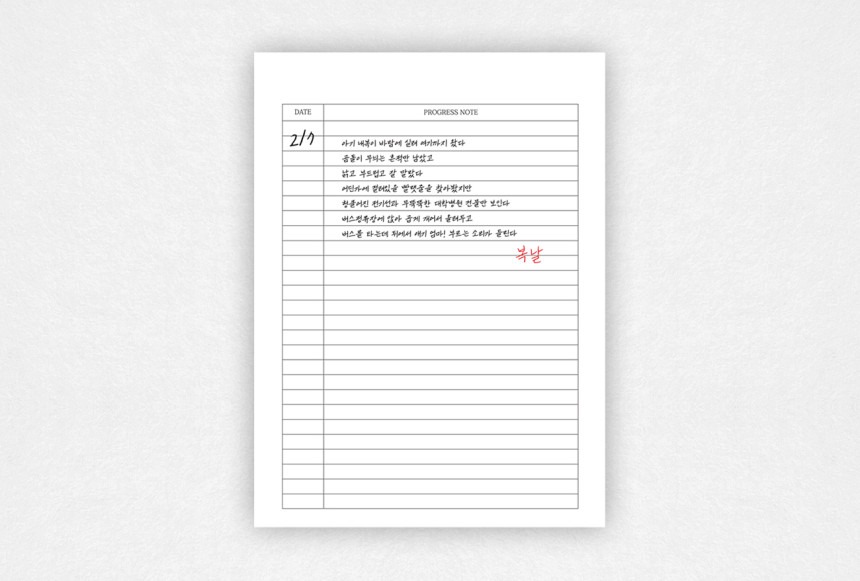 DATE PROGRESS NOTE
2/7 아기 내복이 바람에 실려 여기까지 왔다
올풀이 부리는 흔적만 남았고
낡고 부드럽고 잘 말랐다
어딘가에 걸려있을 빨랫줄을 찾아봤지만
헝클어진 전기선과 뚜벅한 대학병원 건물만 보인다
버스정류장에 앉아 곱게 개어서 올려두고
버스를 타는데 뒤에서 애기 엄마! 부르는 소리가 들린다
복날